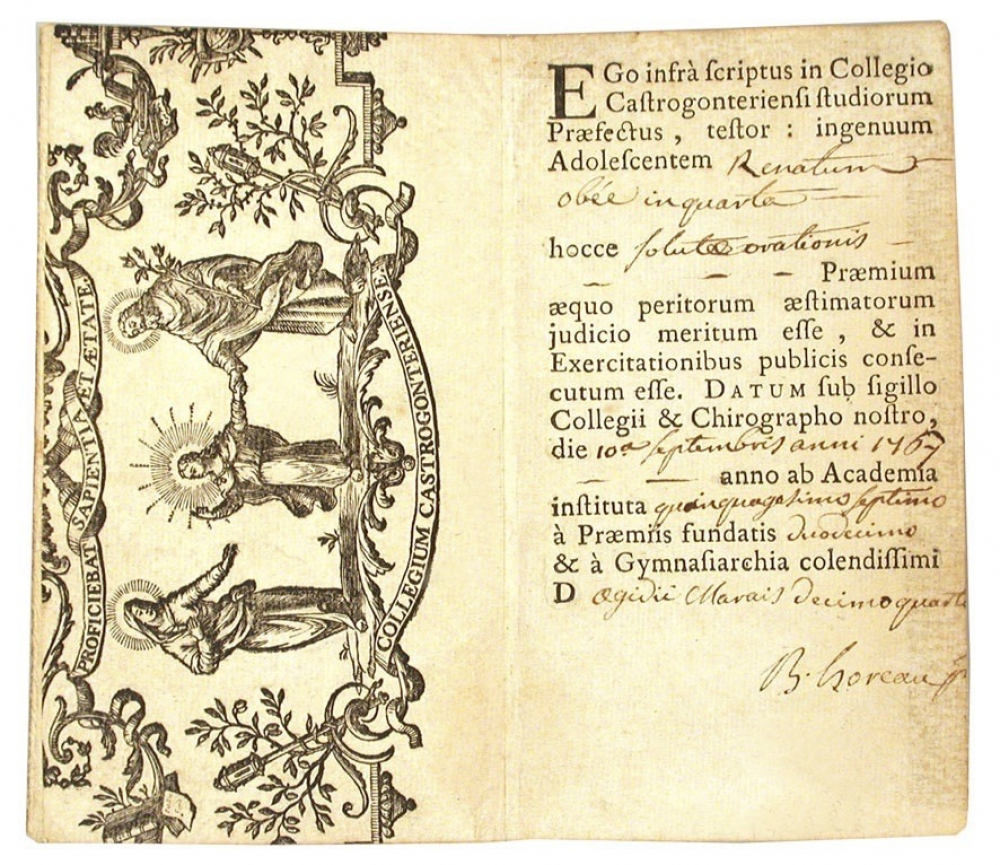 PROFICIEBAT SAPIENTIA ET ÆTATE.
COLLEGIUM CASTROGONTERIENSE.
EGo infrà ſcriptus in Collegio
Caſtrogonterienſi ſtudiorum
Præfectus, teſtor : ingenuum
Adoleſcentem Renatum
obée in quarta
hocce ſolutæ orationis
Præmium
æquo peritorum æſtimatorum
judicio meritum eſſe, & in
Exercitationibus publicis conſe-
cutum eſſe. DATUM ſub ſigillo
Collegii & Chirographo noſtro,
die 10a Septembris anni 1767
anno ab Academia
inſtituta quinquagesimo septimo
à Præmiis fundatis duodecimo
& à Gymnaſiarchia colendiſſimi
D Ægidii Marais decimo quarto
B. horeau